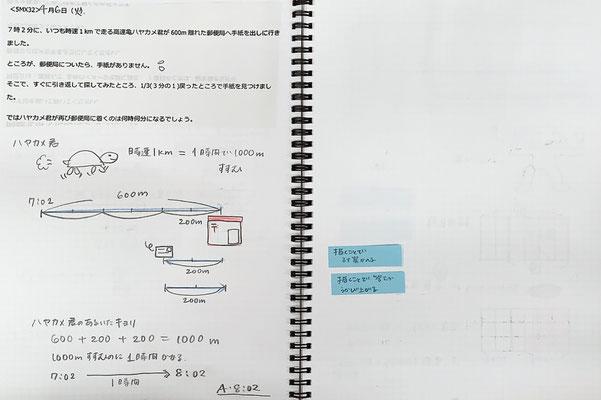 <5MX32>4月6日(火)
7時2分に、いつも時速1kmで走る高速亀ハヤカメ君が600m離れた郵便局へ手紙を出しに行き
ました。
ところが、郵便局についたら、手紙がありません。
そこで、すぐに引き返して探してみたところ、1/3(3分の1)戻ったところで手紙を見つけまし
た。
ではハヤカメ君が再び郵便局に着くのは何時何分になるでしょう。
ハヤカメ君
時速1km = 1時間で1000m
すすむ
600m
7:02
200m
〒
200m
200m
ハヤカメ君のあるいたキョリ
600 + 200 + 200 = 1000 m
1000mすすむのに1時間かかる
7:02 → 8:02
1時間
A. 8:02
描くことで
描くことで